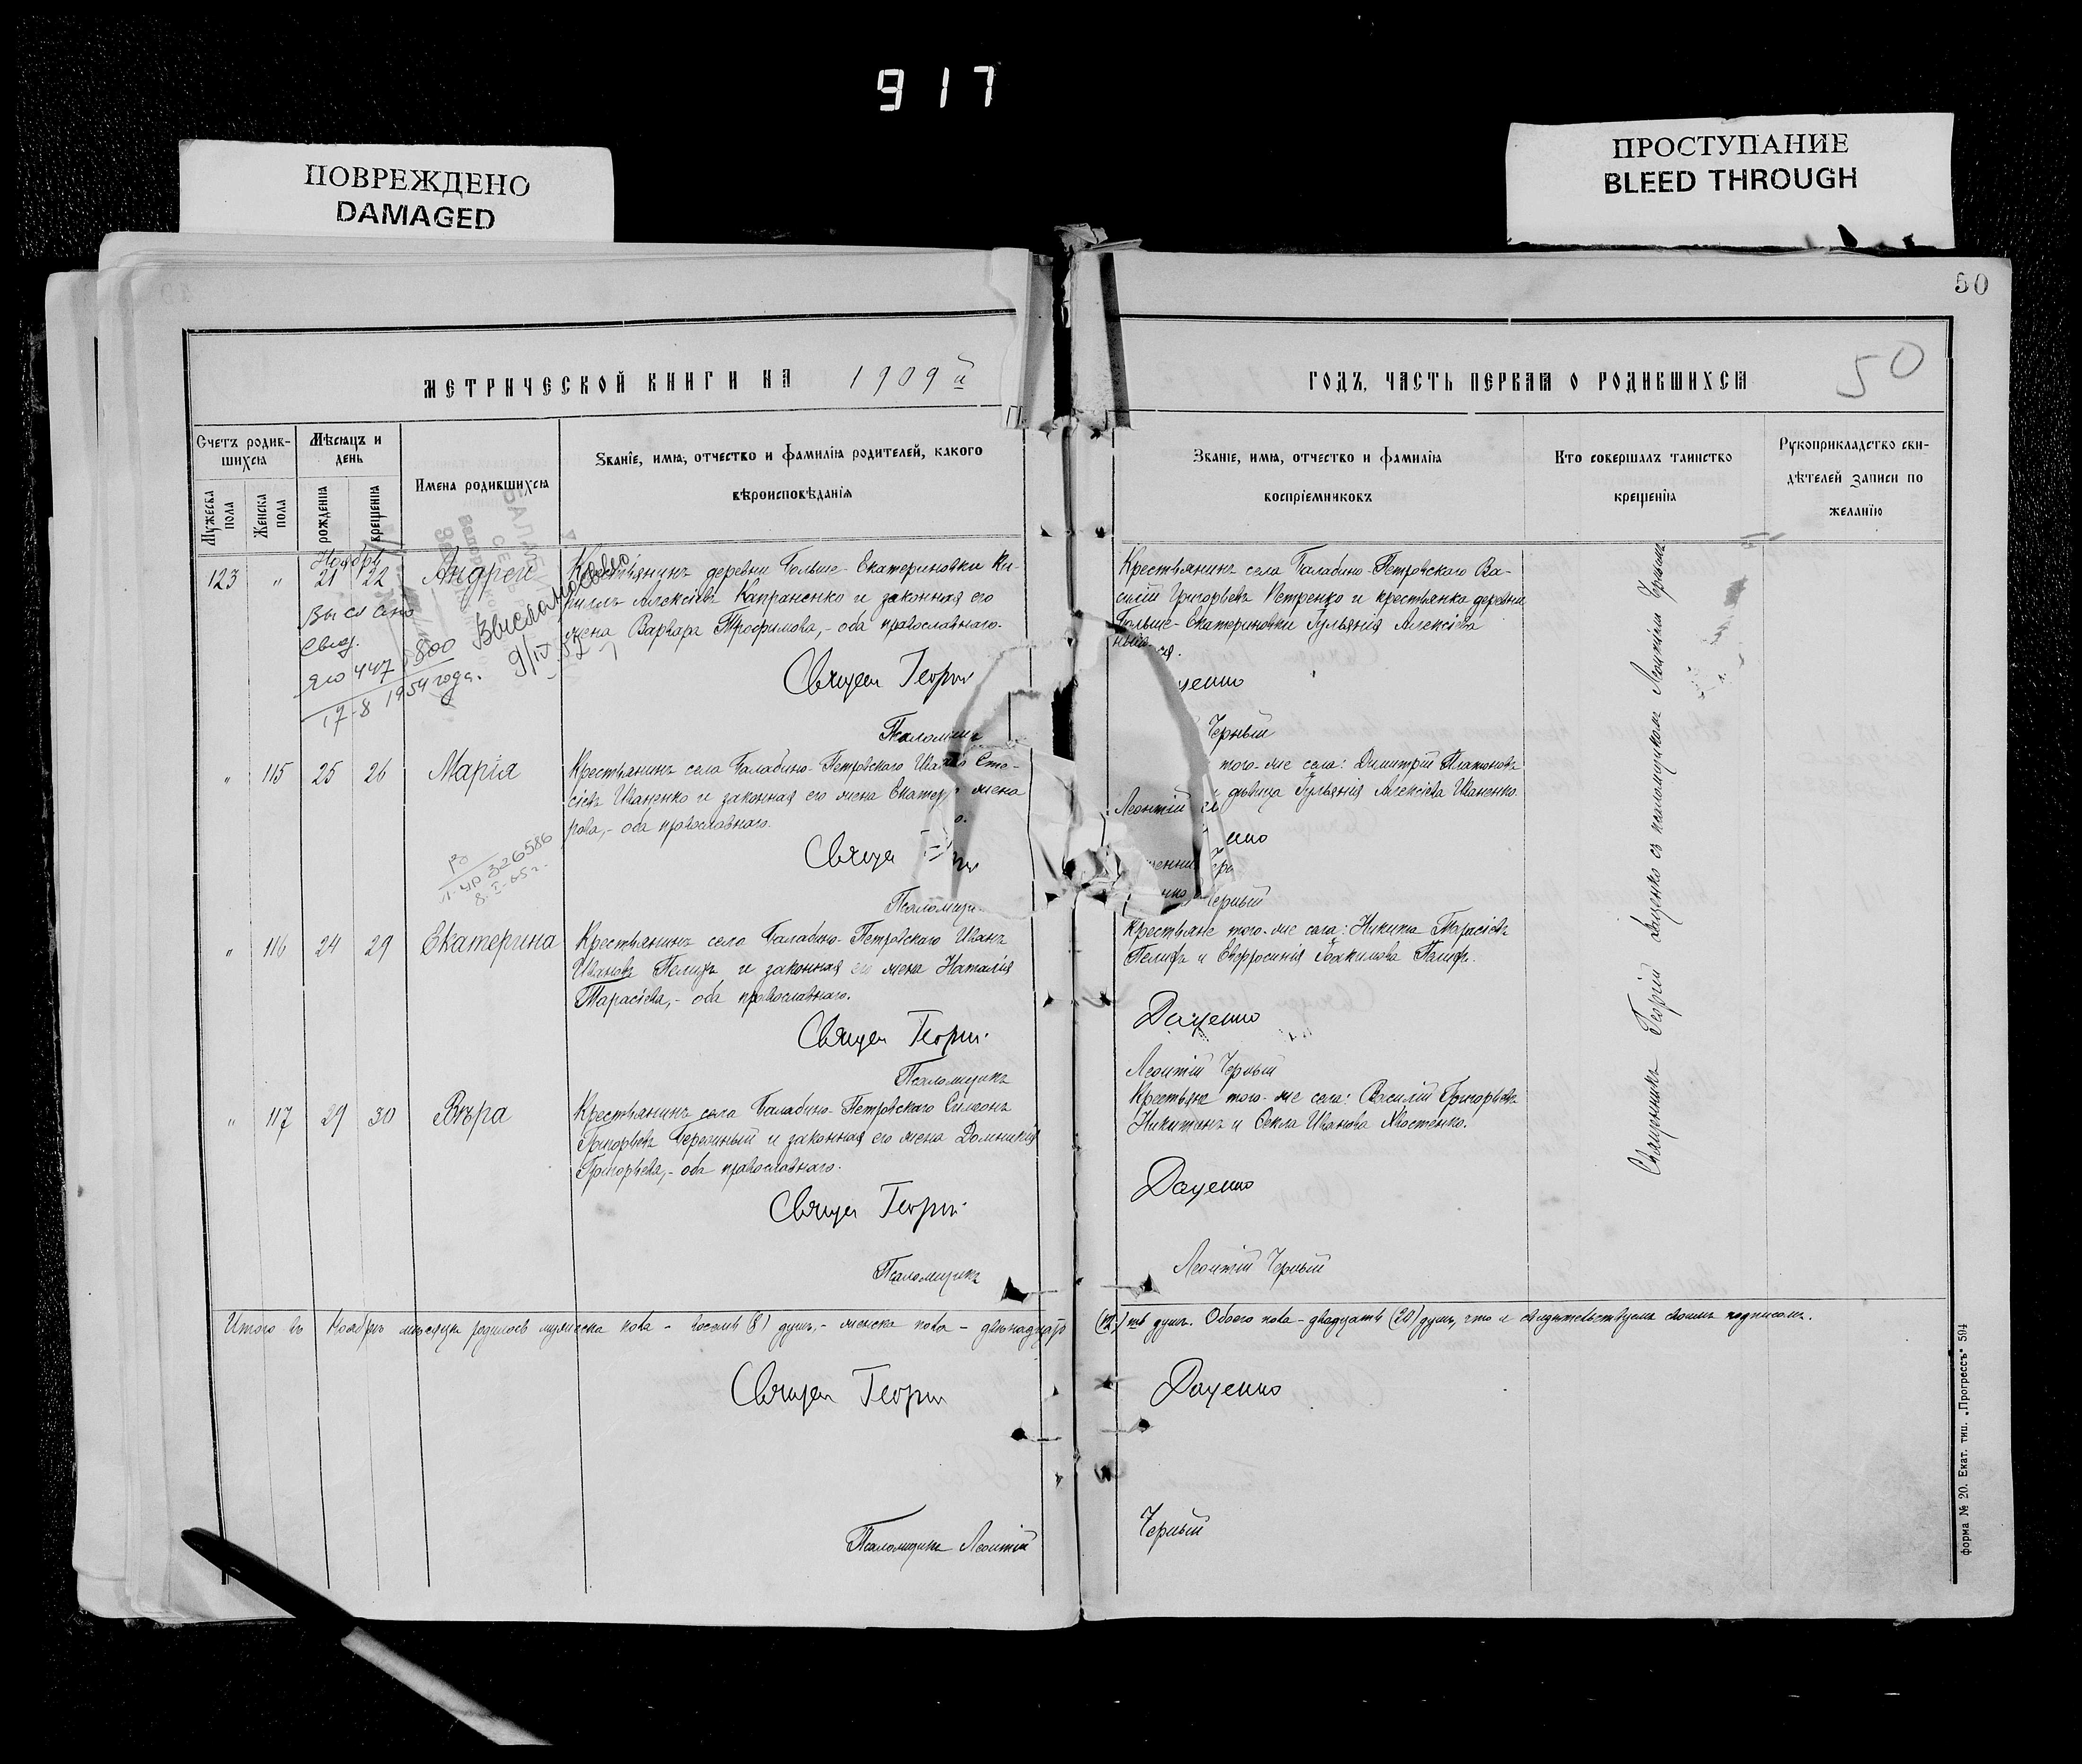 917
ПОВРЕЖДЕНО
DAMAGED
ПРОСТУПАНИЕ
BLEED THROUGH
50
50
МЕТРИЧЕСКОЙ КНИГИ НА 1909й
ГОДЪ, ЧАСТЬ ПЕРВАЯ О РОДИВШИХСЯ
Счетъ родив-
шихся
Мѣсяцъ и
день
Имена родившихся
Званіе, имя, отчество и фамилія родителей, какого
вѣроисповѣданія
Мужеска пола
Женска пола
рожденія
крещенія
Званіе, имя, отчество и фамилія
воспріемниковъ
Кто совершалъ таинство
крещенія
Рукоприкладство сви-
дѣтелей записи по
желанію
Ноябрь
123 " 21 22 Андрей
Крестьянинъ деревни Больше-Екатериновки Ки-
риллъ Алексіевъ Капраненко и законная его
жена Варвара Трофимова,- оба православнаго.
Священ Георгій
Псаломщикъ
Выслано
свид.
447
800
17-8 1954 года.
9/IV 52
Крестьянинъ села Балабино-Петровскаго Ва-
силій Григорьевъ Петренко и крестьянка деревни
Больше-Екатериновки Гульянія Алексіева
Черный
" 115 25 26 Марія
Крестьянинъ села Балабино-Петровскаго
сіевъ Иваненко и законная его жена
рова,- оба православнаго.
Священ
Псаломщ
326586
8.I-65г.
того-же села: Димитрій Платоновъ
дѣвица Гульянія Алексіева Иваненко
Леонтій
Черный
" 116 24 29 Екатерина
Крестьянинъ села Балабино-Петровскаго Иванъ
Ивановъ Пелихъ и законная его жена Наталія
Тарасіева,- оба православнаго.
Священ Георгій
Псаломщикъ
Крестьяне того-же села: Никита Тарасіевъ
Пелихъ и Евфросинія Іоакимова Пелихъ.
Даценко
Леонтій Черный
" 117 29 30 Вѣра
Крестьянинъ села Балабино-Петровскаго Симеонъ
Григорьевъ Бережный и законная его жена Домникія
Григорьева,- оба православнаго.
Священ Георгій
Псаломщикъ
Крестьяне того-же села: Василій Григорьевъ
Никитинъ и Ѳекла Иванова Хвостенко.
Даценко
Леонтій Черный
Священникъ Георгій Даценко съ псаломщикомъ Леонтіемъ Чернымъ
Итого въ Ноябрѣ мѣсяцѣ родилось мужеска пола - восемь (8) душъ,- женска пола - двѣнадцать
(12) душъ. Обоего пола - двадцать (20) душъ, что и свидѣтельствуемъ своимъ подписомъ.
Священ Георгій
Даценко
Псаломщикъ Леонтій
Черный
форма № 20. Екат. тип. „Прогрессъ“ 594